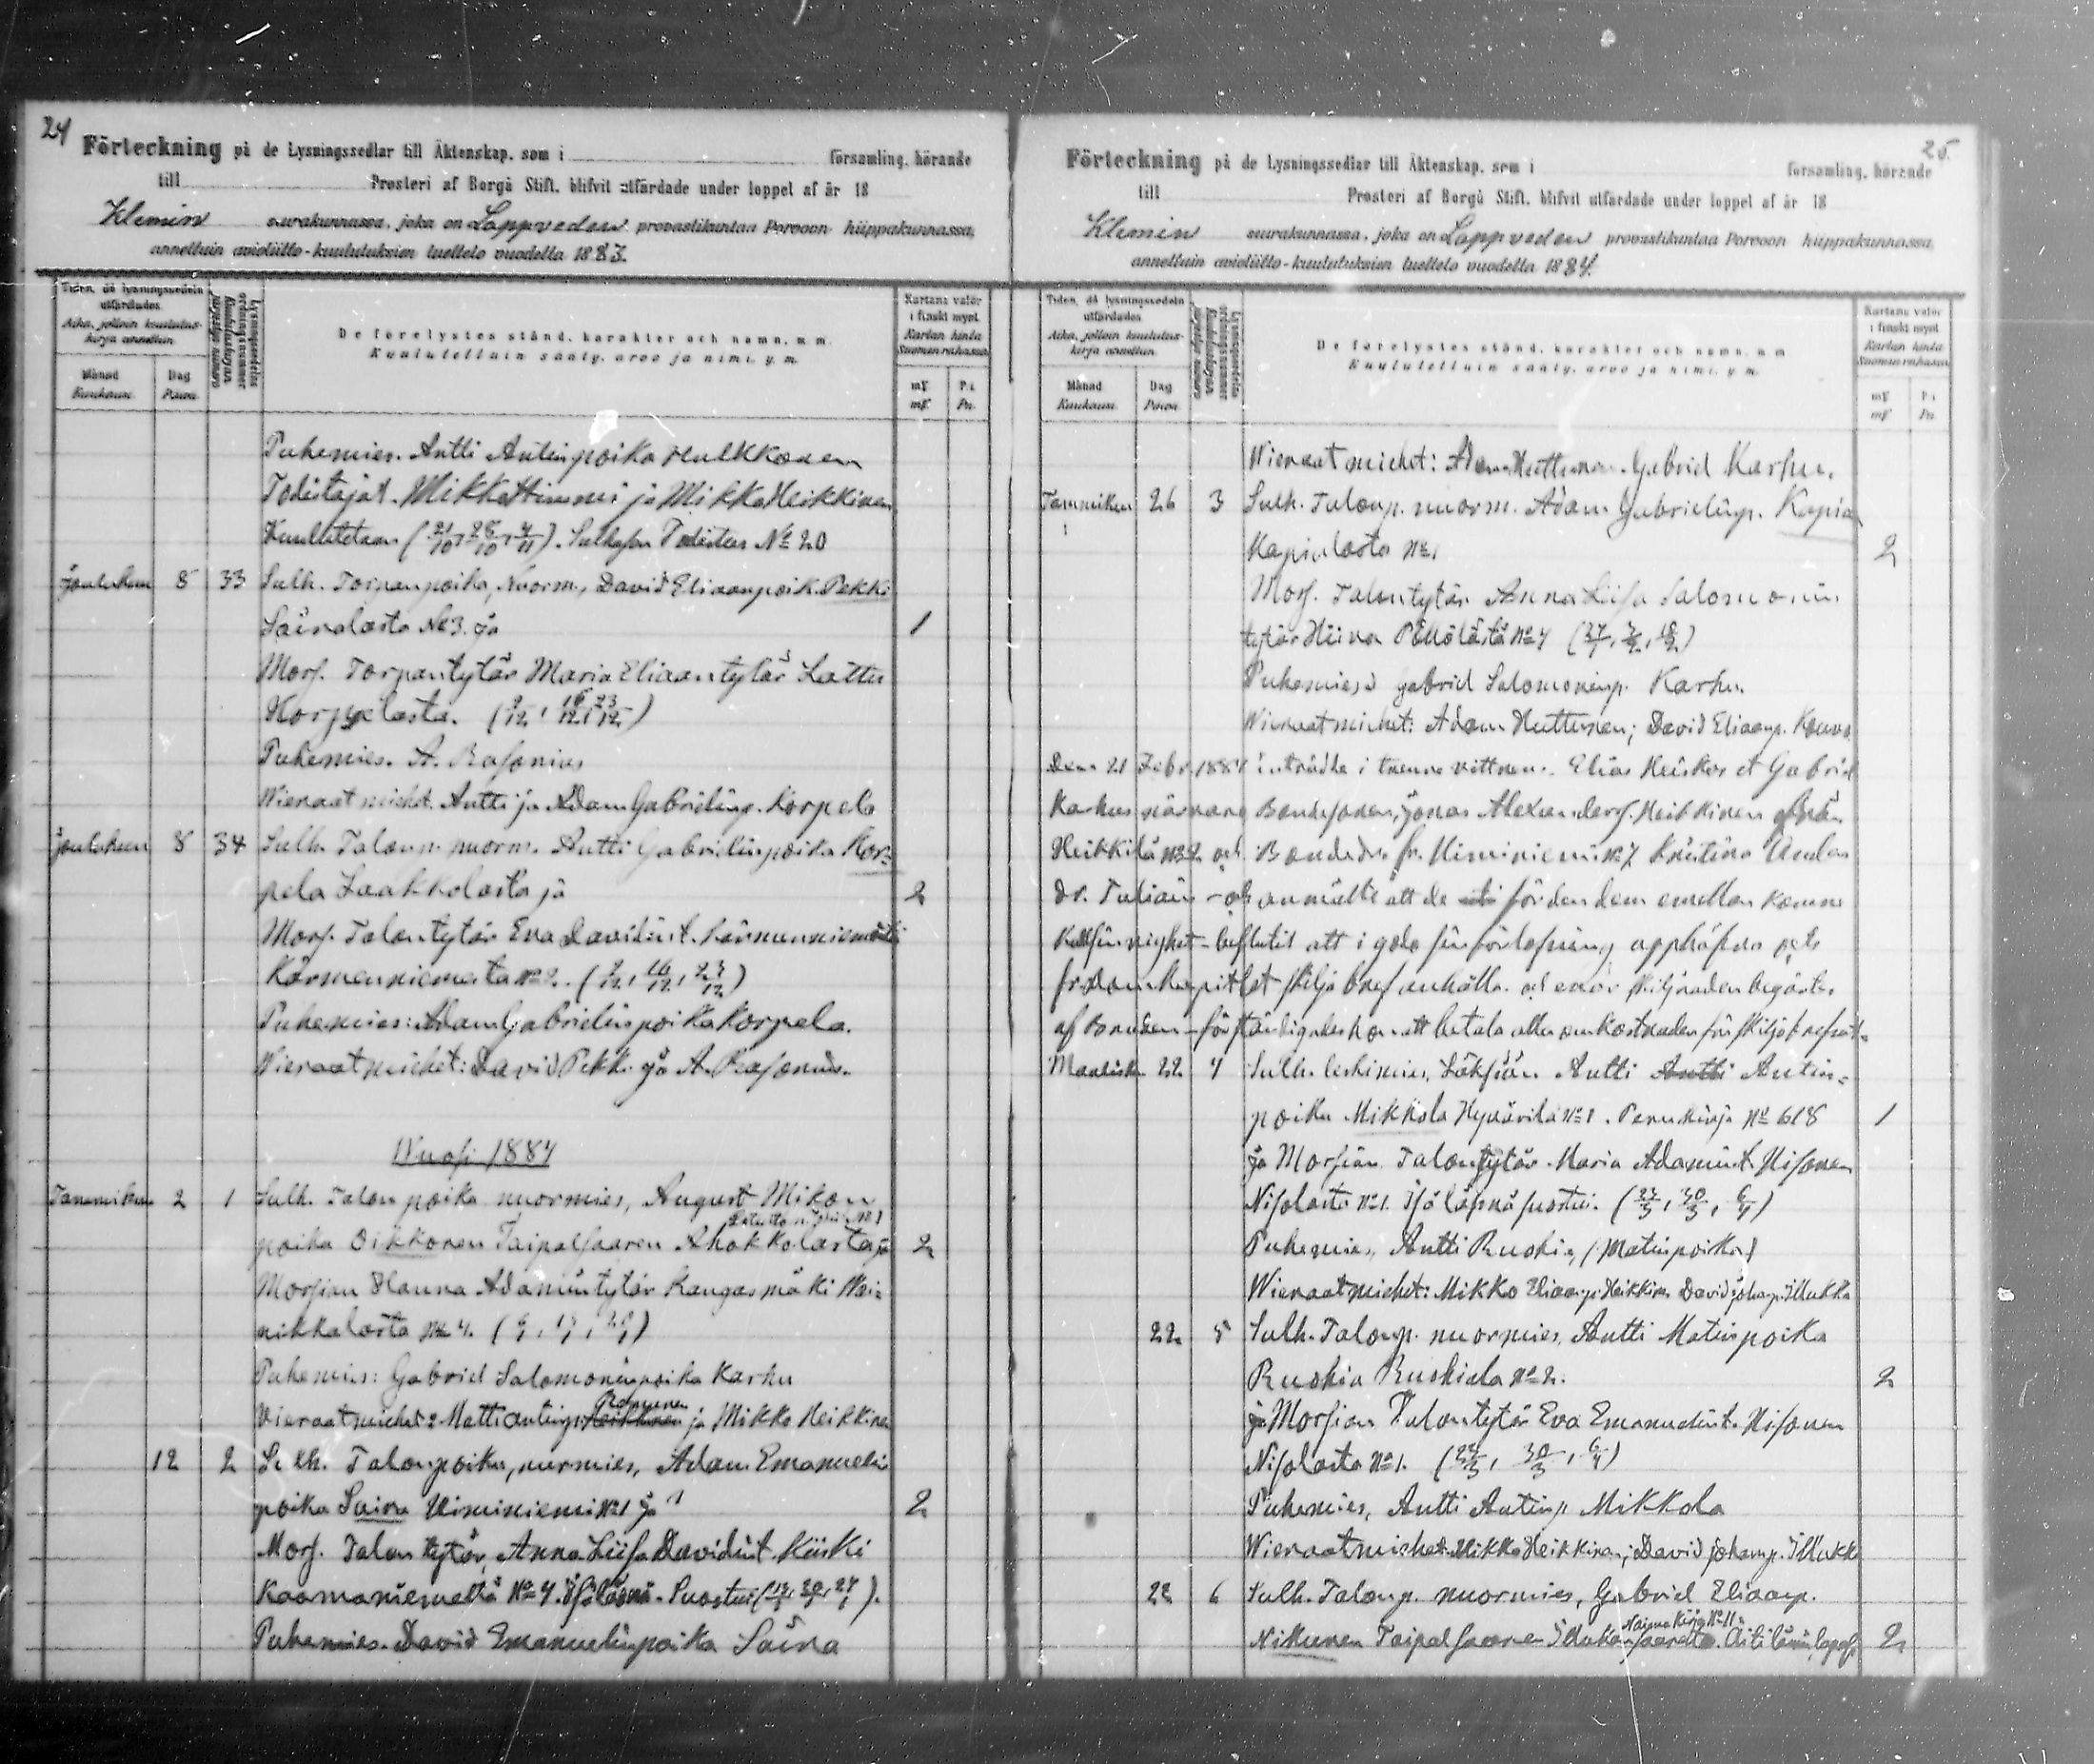 24
Förteckning på de Lysningssedlar till Äktenskap, som i församling, hörande
till Prosteri af Borgå Stift, blifvit utfärdade under loppet af år 18
Klemin seurakunnassa, joka on Lappveden provastikuntaa Porvoon hiippakunnassa,
annettuin avioliitto-kuulutuksien luettelo vuodelta 1883.
Tiden, då lysningssedeln utfärdades.
Aika, jolloin kuulutus-kirja annettiin.
Månad Kuukausi.
Dag Päivä.
Lysningssedelns ordningsnummer
Kuulutuskirjan järjestys numero
De förelystes stånd, karakter och namn, m. m.
Kuulutettuin sääty, arvo ja nimi, y. m.
Kartans valör i finskt mynt.
Kartan hinta Suomen rahassa.
mk Pi
mk. Pn.
Puhemies. Antti Antinpoika Hulkkonen
Todistajat. Mikko Himmi ja Mikko Heikkinen
Kuulutetaan (21/10, 28/10, 4/11). Sulhasen Todistus № 20
Joulukuu 8 33 Sulh. Torpanpoika, Nuorm., David Eliaanpoik. Pekki
Säiväläestä № 3. ja 1
Mors. Torpantytär Maria Eliaantytär Lattu
Korppelasta. (9/12, 16/12, 23/12)
Puhemies. A. Rasonius
Wieraat miehet. Antti ja Adam Gabrielinp. Korpela
Joulukuu 8 34 Sulh. Talonp. nuorm. Antti Gabrielinpoika Kor-
pela Laakkolasta ja 2
Mors. Talontytär Eva Davidint.
Kärmenniemestä № 2. (9/12, 16/12, 23/12)
Puhemies: Adam Gabrielinpoika Korpela.
Wieraat miehet: David Pekki ja A. Rasonius.
Wuosi 1884
Tammikuu 2 1 Sulh. Talonpoika nuormies, August Mikon
poika Oikkonen Taipalsaaren Ahokkolasta ja 2
Morsian Hanna Adamintytär Kangasmäki Wai-
nikkalasta № 4.
Puhemies: Gabriel Salomoninpoika Karhu
Vieraat miehet: Matti Antinp. Heikkinen ja Mikko Heikkinen
12 2 Sulh. Talonpoika, nurmies, Adam Emanuelin
poika Saira Himiniemi № 1 ja 2
Mors. Talontytär, Anna Liisa Davidint. Kiiski
Kaamaniemeltä № 4. Isä läsnä. Suostui (13/1, 20/1, 27/1).
Puhemies. David Emanuelinpoika Säira
25.
Förteckning på de Lysningssedlar till Äktenskap, som i församling, hörande
till Prosteri af Borgå Stift, blifvit utfärdade under loppet af år 18
Klemin seurakunnassa, joka on Lappveden provastikuntaa Porvoon hiippakunnassa,
annettuin avioliitto-kuulutuksien luettelo vuodelta 1884.
Tiden, då lysningssedeln utfärdades.
Aika, jolloin kuulutus-kirja annettiin.
Månad Kuukausi.
Dag Päivä.
Lysningssedelns ordningsnummer
Kuulutuskirjan järjestys numero
De förelystes stånd, karakter och namn, m. m.
Kuulutettuin sääty, arvo ja nimi, y. m.
Kartans valör i finskt mynt.
Kartan hinta Suomen rahassa.
mk Pi
mk. Pn.
Wieraat miehet: Adam Huttunen. Gabriel Karhu.
Tammikuu 26 3 Sulh. Talonp. nuorm. Adam Gabrielinp. Kapia
Kapialasta № 1 2
Mors. Talontytär Anna Liisa Salomonin
tytär Hiiva Pëllölästä № 4 (27/1, 3/2, 10/2)
Puhemies Gabriel Salomoninp. Karhu.
Wieraat miehet: Adam Huttunen; David Eliaanp. Kouvo
Den 21 Febr. 1884 inträdde i tvenne vittnens. Elias Heiskas et Gabriel
Karhus närvaro Bondesonen, Jonas Alexanders. Heikkinen från
Heikkilä № 2 och Bondedr. fr. Himiniemi № 7 Kristina
dr. Tulian – och anmälte att de för den dem emellan komne
Kallsinnighet – beslutit att i godo sin förlofning upphäfva och
från domkapitlet skiljobref anhålla och enär skilnaden begärtes
af bruden – förständigades hon att betala alla omkostnader för skiljobrefvet.
Maalisk. 22 4 Sulh. leskimies, Antti Antti Antin-
poika Mikkola Hyvärilä № 1. Perukirja № 618 1
ja Morsian Talontytär Maria Adamint. Hisonen
Nisolasta № 1. Isä läsnä suostui. (23/3, 30/3, 6/4)
Puhemies, Antti Ruohia, (Matinpoika)
Wieraat miehet: Mikko Eliaanp. Heikkinen David Johanp. Illukka
22 5 Sulh. Talonp. nuormies, Antti Matinpoika
Ruohia Ruohiala № 2. 2
ja Morsian Talontytär Eva Emanuelint. Hisonen
Nisolasta № 1. (23/3, 30/3, 6/4)
Puhemies, Antti Antinp. Mikkola
Wieraat miehet Mikko Heikkinen; David Johanp. Illukka
22 6 Sulh. Talonp. nuormies, Gabriel Eliaanp.
Nikunen Taipalsaaren Illukansaarelta. 2